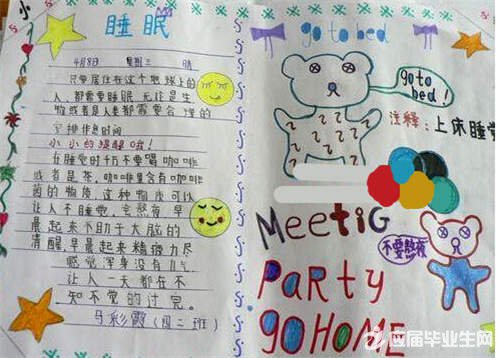 小
睡眠
4月8日 星期三 晴
只要居住在这个地球上的
人都需要睡眠,无论是生
物或者是人类都需要合理的
安排作息时间
小小的提醒哦!
在睡觉时千万不要喝咖啡
或者是茶,咖啡里含有咖啡
因的物质,这种物质可以
让人不睡觉,
早晨起来不助于大脑的
清醒,早晨起来精疲力尽
感觉浑身没有力气
让人一天都在不
知不觉的过完。
马彩霞(四二班)
go to bed
go to
bed!
注释:上床睡觉
Meetig
不要熬夜
PaRty
goHOME
应届毕业生网